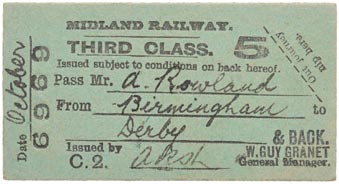 MIDLAND RAILWAY.
THIRD CLASS. 5
Issued subject to conditions on back hereof.
Pass Mr. A. Rowland
From Birmingham to
Derby
& BACK.
Issued by
W. GUY GRANET
General Manager.
C. 2.
Date October
6969
Out journey
clip here.